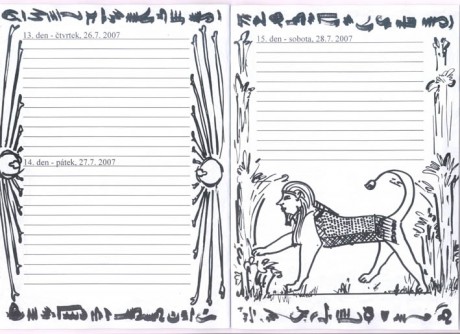 13. den - čtvrtek, 26.7. 2007
14. den - pátek, 27.7. 2007
15. den - sobota, 28.7. 2007